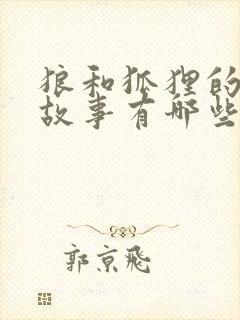 狼和狐狸的
故事有哪些
郭京飞